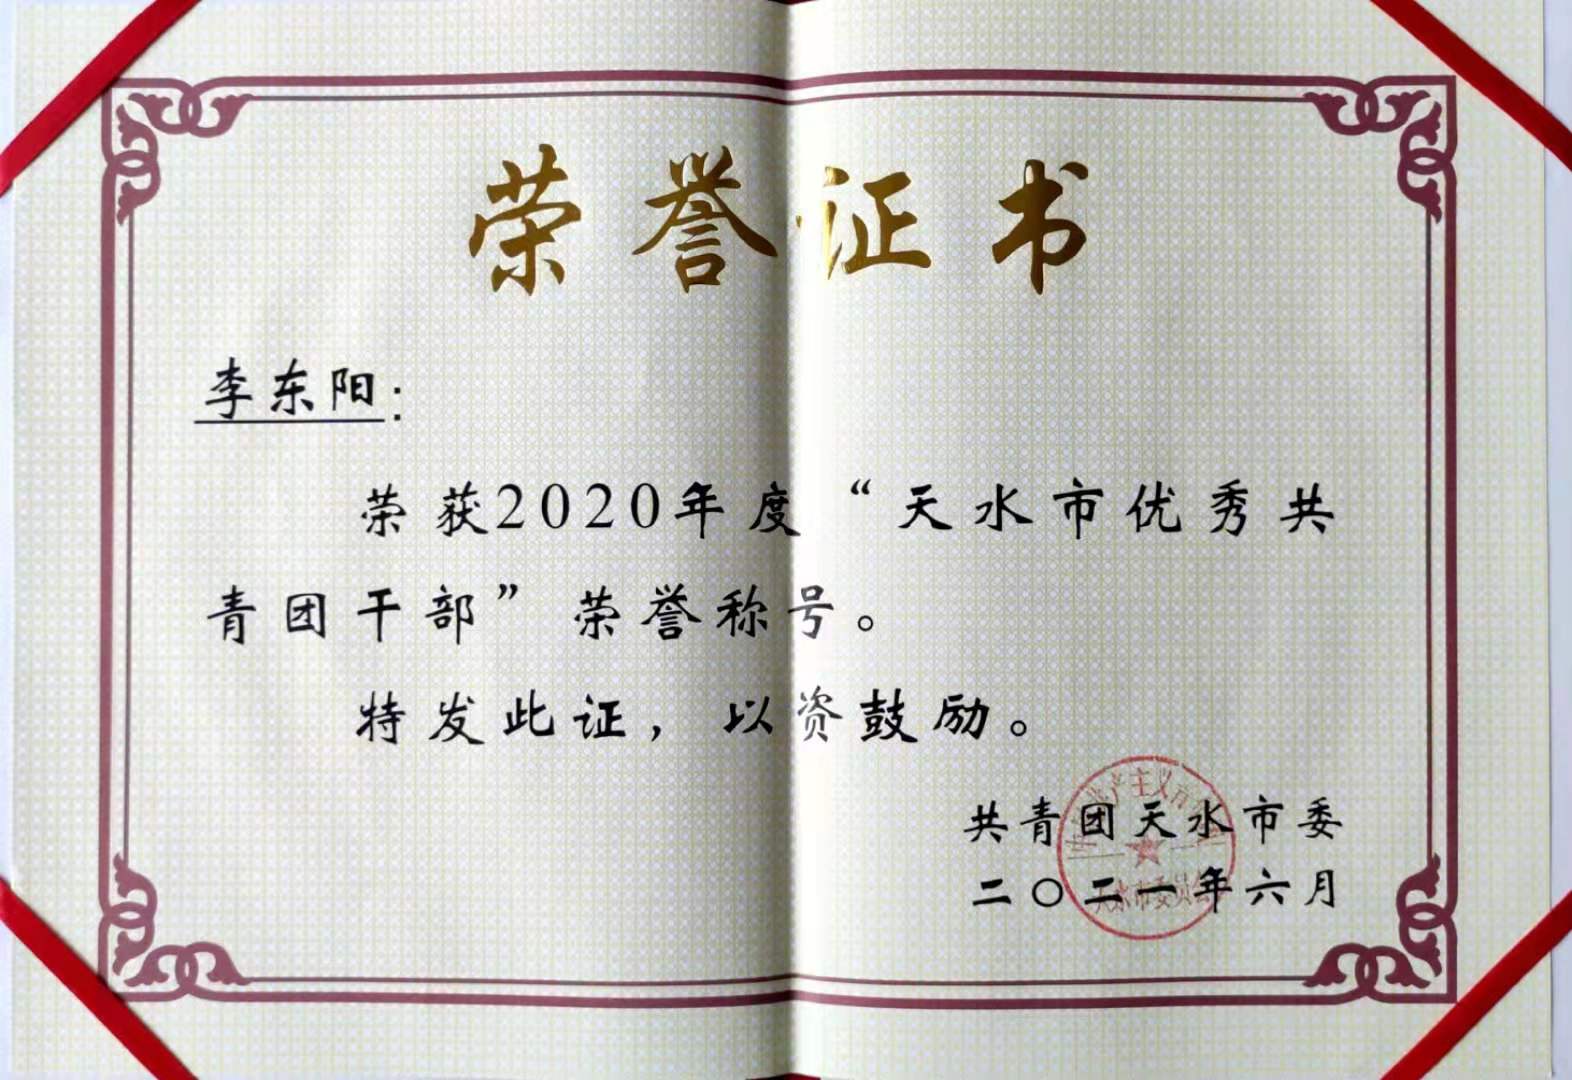 荣誉证书
李东阳：
荣获2020年度“天水市优秀共
青团干部”荣誉称号。
特发此证，以资鼓励。
共青团天水市委
二〇二一年六月
产主义青
天水市委员会